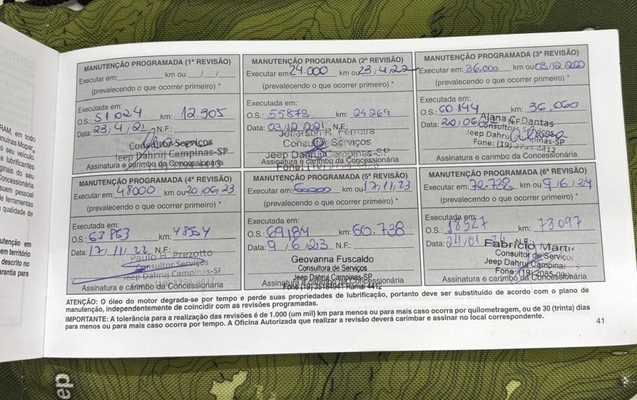 MANUTENÇÃO PROGRAMADA (1ª REVISÃO)
Executar em: km ou / /
(prevalecendo o que ocorrer primeiro) *
Executada em:
O.S.: 51024 km: 12.905
Data: 23,4,21 N.F.:
Consultor Serviços
Jeep Dahruj Campinas-SP
Assinatura e carimbo da Concessionária
MANUTENÇÃO PROGRAMADA (2ª REVISÃO)
Executar em: 24.000 km ou 23,4,22
(prevalecendo o que ocorrer primeiro) *
Executada em:
O.S.: 55872 km: 24264
Data: N.F.:
Ferreira
Consultor Serviços
Jeep Dahruj Campinas-SP
Assinatura e carimbo da Concessionária
MANUTENÇÃO PROGRAMADA (3ª REVISÃO)
Executar em: 36.000 km ou
(prevalecendo o que ocorrer primeiro) *
Executada em:
O.S.: 60144 km: 36.060
Data: N.F.:
Dantas
Consultora
Jeep Dahruj Campinas-SP
Fone: (19)
Assinatura e carimbo da Concessionária
MANUTENÇÃO PROGRAMADA (4ª REVISÃO)
Executar em: 48000 km ou 20,06,23
(prevalecendo o que ocorrer primeiro) *
Executada em:
O.S.: 63863 km: 48564
Data: 17,11,22 N.F.:
Paulo H. Prezotto
Consultor Serviços
Jeep Dahruj Campinas-SP
Assinatura e carimbo da Concessionária
MANUTENÇÃO PROGRAMADA (5ª REVISÃO)
Executar em: 60000 km ou 17,11,23
(prevalecendo o que ocorrer primeiro) *
Executada em:
O.S.: 69184 km: 60.738
Data: 9,6,23 N.F.:
Geovanna Fuscaldo
Consultora de Serviços
Jeep Dahruj Campinas-SP
Assinatura e carimbo da Concessionária
MANUTENÇÃO PROGRAMADA (6ª REVISÃO)
Executar em: 72.738 km ou 9,6,24
(prevalecendo o que ocorrer primeiro) *
Executada em:
O.S.: km: 73097
Data: N.F.:
Fabrício Marti
Consultor de Serviços
Jeep Dahruj Campinas
Fone: (19)
Assinatura e carimbo da Concessionária
ATENÇÃO: O óleo do motor degrada-se por tempo e perde suas propriedades de lubrificação, portanto deve ser substituído de acordo com o plano de
manutenção, independentemente de coincidir com as revisões programadas.
IMPORTANTE: A tolerância para a realização das revisões é de 1.000 (um mil) km para menos ou para mais caso ocorra por quilometragem, ou de 30 (trinta) dias
para menos ou para mais caso ocorra por tempo. A Oficina Autorizada que realizar a revisão deverá carimbar e assinar no local correspondente.
41